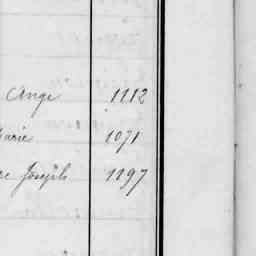 Ange 1112
Marie 1071
Joseph 1197